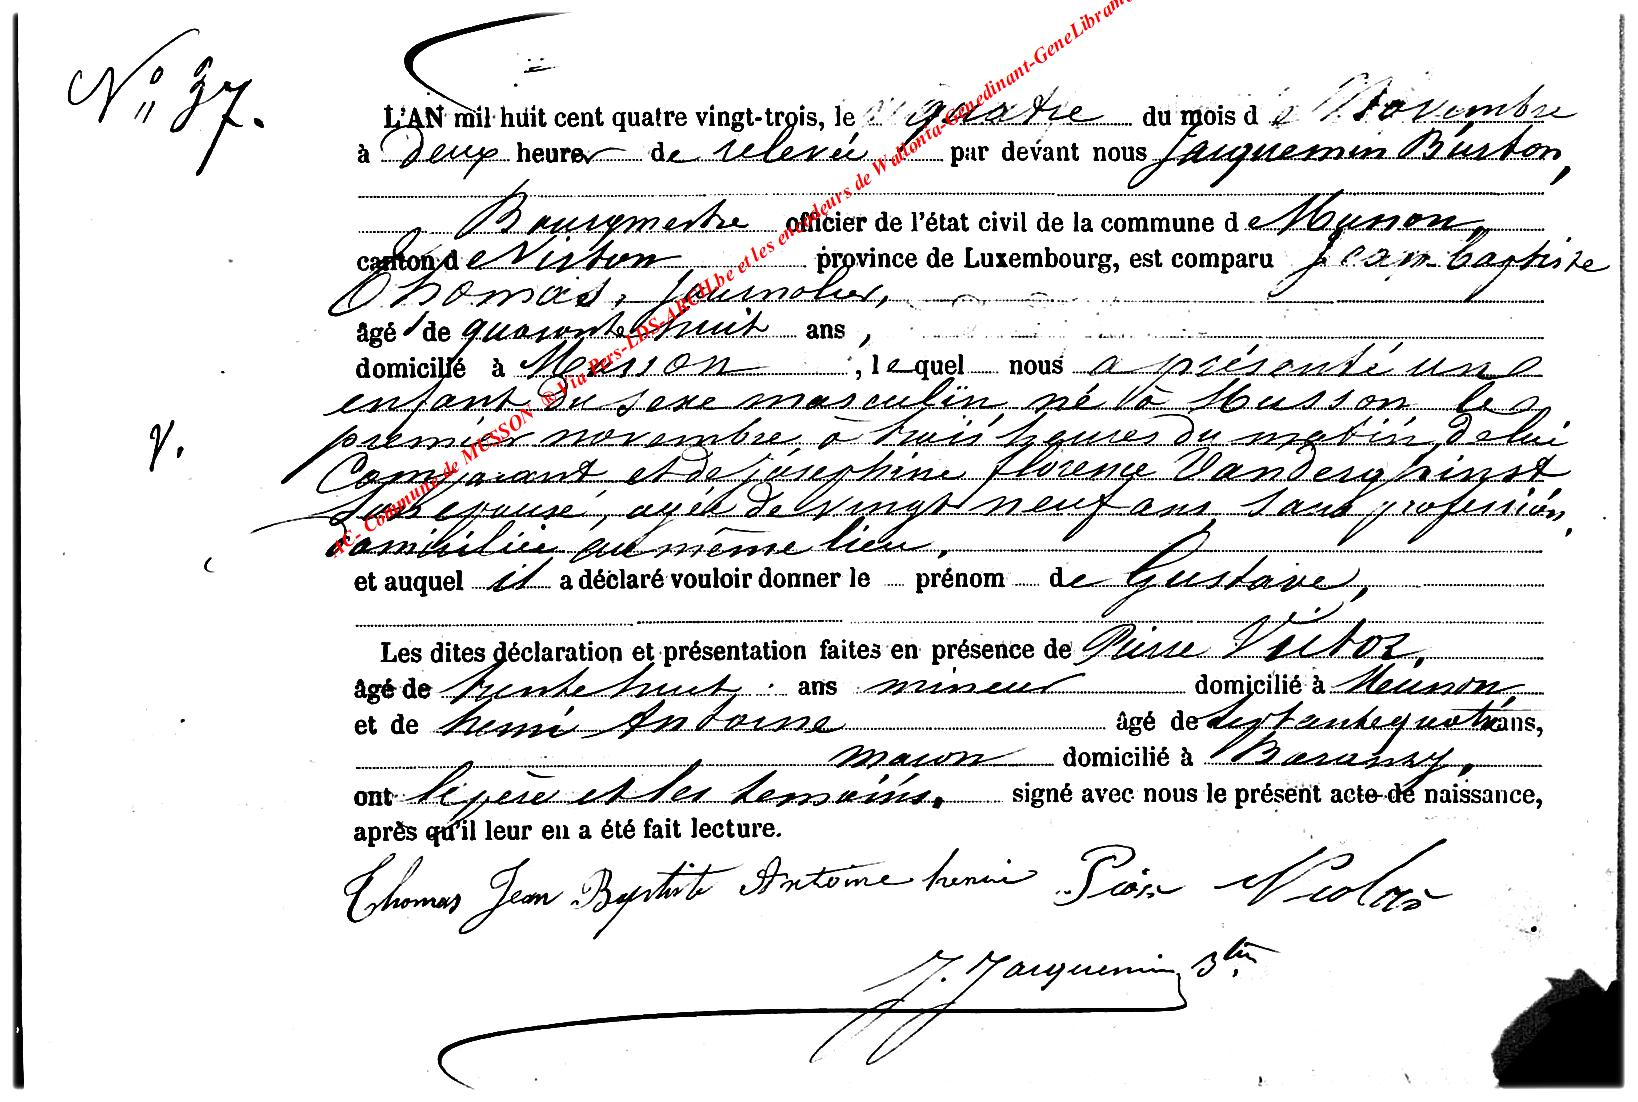 N° 37.
L'AN mil huit cent quatre vingt-trois, le quatre du mois de Novembre
à deux heures de relevée par devant nous Jacquemin Burton,
Bourgmestre officier de l'état civil de la commune de Musson,
canton de Virton province de Luxembourg, est comparu Jean Baptiste
Thomas, journalier,
âgé de quarante huit ans,
domicilié à Musson, lequel nous a présenté un
enfant du sexe masculin né à Musson le
premier novembre à trois heures du matin, de lui
Comparant et de joséphine florence Vanderghinst
son épouse, agée de vingt neuf ans, sans profession,
domiciliée au même lieu.
et auquel il a déclaré vouloir donner le prénom de Gustave,
Les dites déclaration et présentation faites en présence de Pierre
âgé de trente huit ans mineur domicilié à Musson,
et de henri Antoine âgé de septante quatre ans,
macon domicilié à Baranzy,
ont le père et les temoins, signé avec nous le présent acte de naissance,
après qu'il leur en a été fait lecture.
Thomas Jean Baptiste Antoine henri Nicolas
J. Jacquemin Btin
AC- Commune de MUSSON ® Via Pers-LDS-ARCHI.be et les encodeurs de Wallonia-Genedinant-GeneLibramo